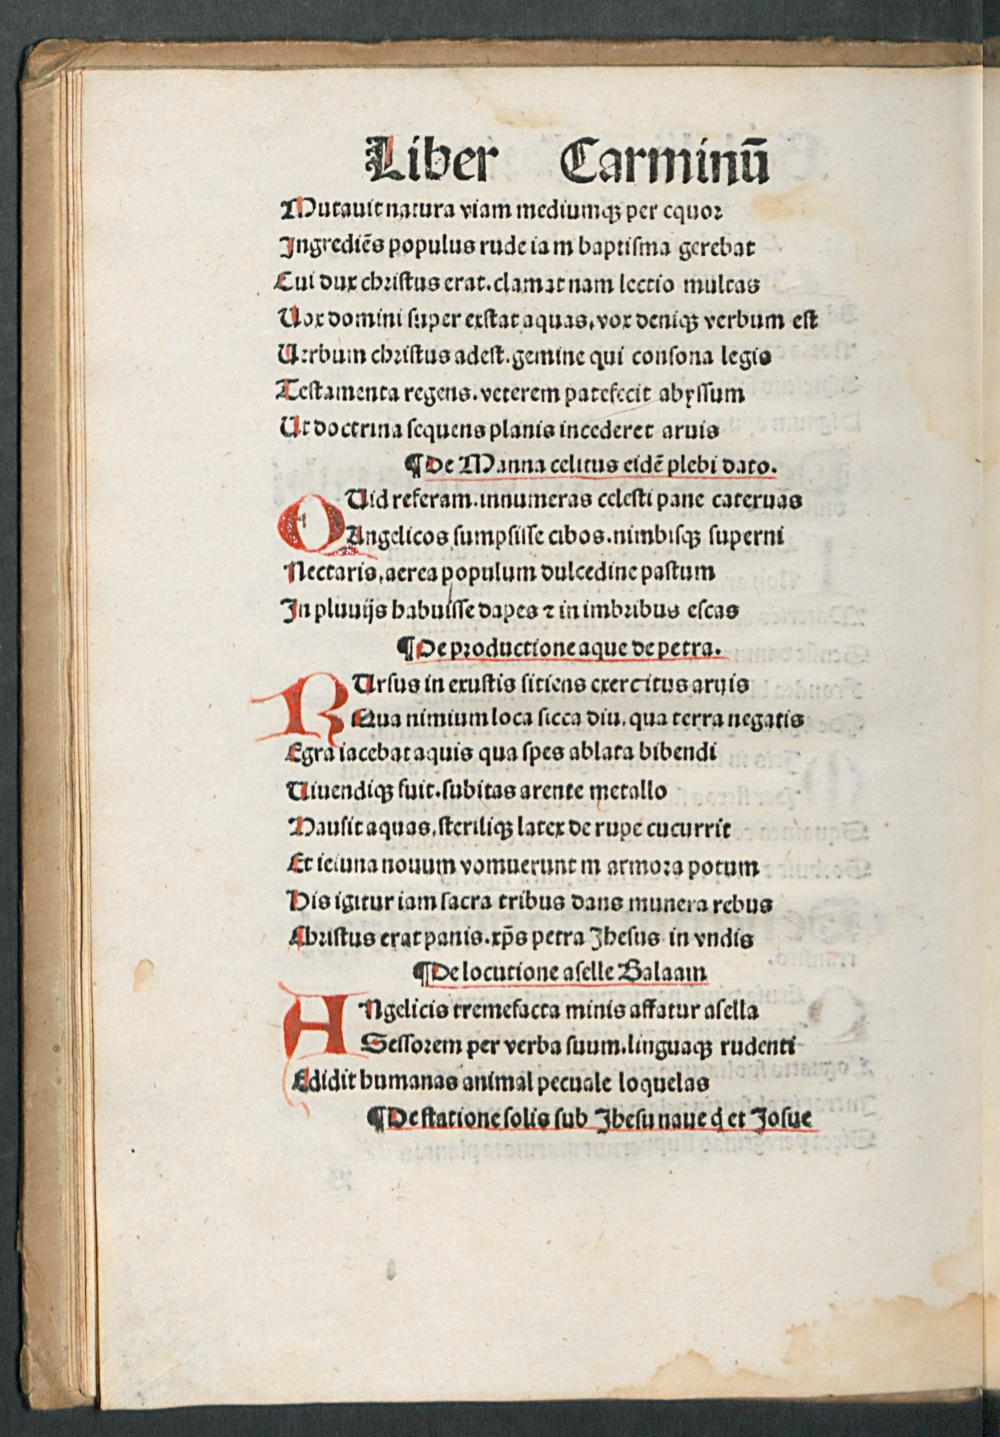 Liber Carminū
Mutauit natura viam mediumqꝫ per equor
Ingrediēs populus rude iam baptisma gerebat
Cui dux christus erat. clamat nam lectio multas
Uox domini super exstat aquas, vox deniqꝫ verbum est
Uerbum christus adest. gemine qui consona legis
Testamenta regens. veterem patefecit abyssum
Ut doctrina sequens planis incederet aruis
¶ De Manna celitus eidē plebi dato.
QUid referam. innumeras celesti pane cateruas
Angelicos sumpsisse cibos. nimbisqꝫ superni
Nectaris, aerea populum dulcedine pastum
In pluuijs habuisse dapes ⁊ in imbribus escas
¶ De productione aque de petra.
RUrsus in exustis sitiens exercitus aruis
Qua nimium loca sicca diu, qua terra negatis
Egra iacebat aquis qua spes ablata bibendi
Uiuendiqꝫ fuit. subitas arente metallo
Hausit aquas, steriliqꝫ latex de rupe cucurrit
Et ieiuna nouum vomuerunt marmora potum
His igitur iam sacra tribus dans munera rebus
Christus erat panis. xp̄s petra Ihesus in vndis
¶ De locutione aselle Balaam
ANgelicis tremefacta minis affatur asella
Sessorem per verba suum. linguaqꝫ rudenti
Edidit humanas animal pecuale loquelas
¶ De statione solis sub Ihesu naue q̇ et Iosue